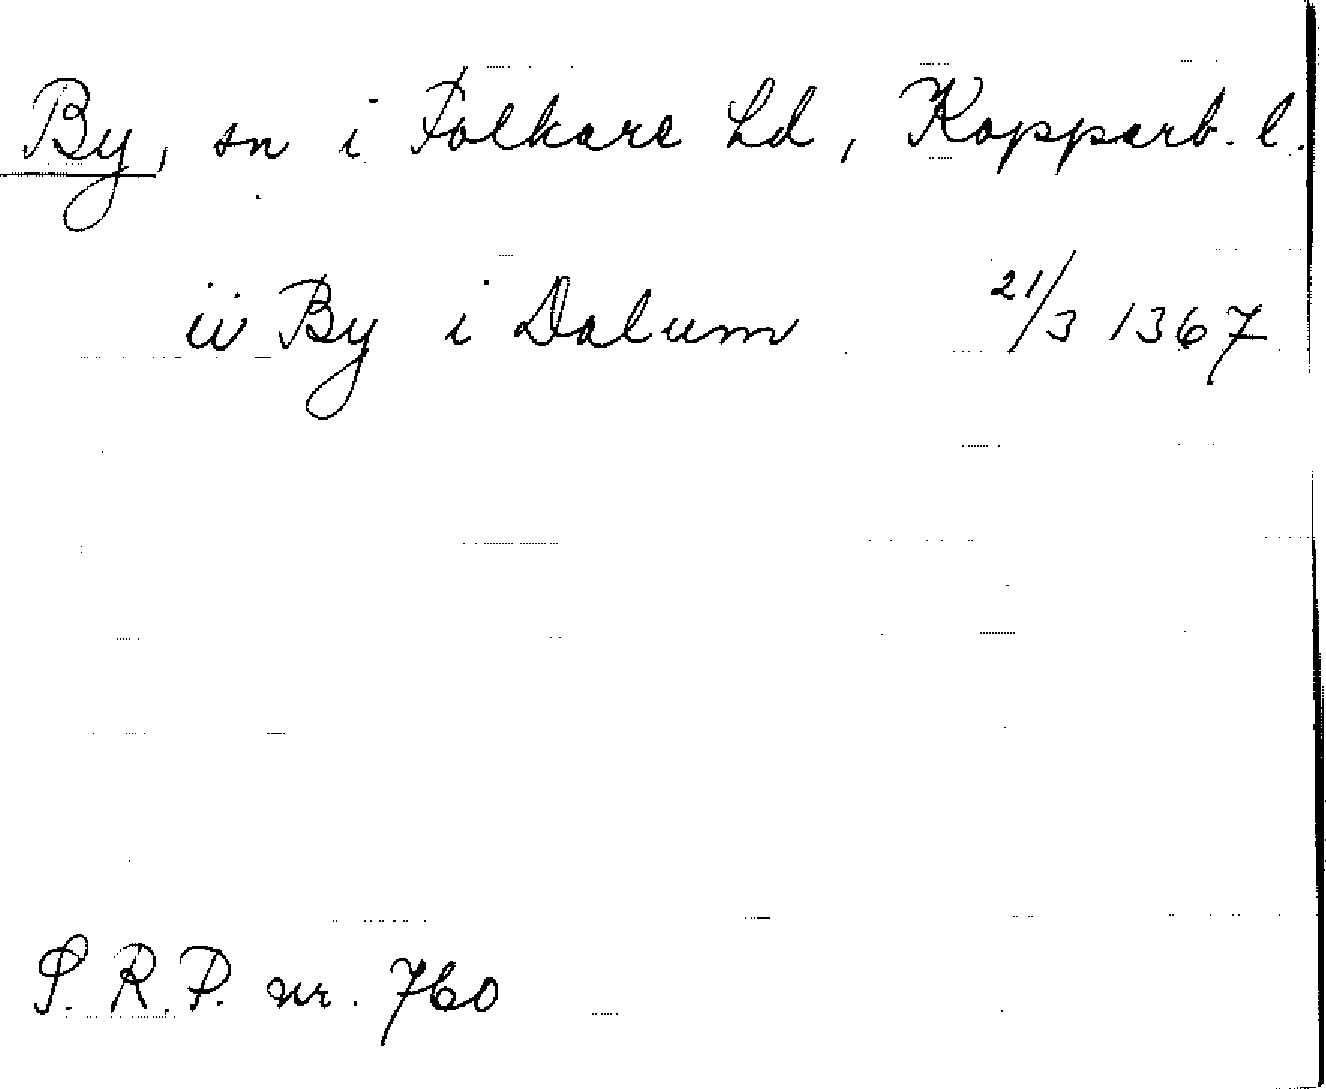 By, sn i Folkare hd, Kopparb. l.
ii By i Dalum 21/3 1367
S. R. P. nr. 760